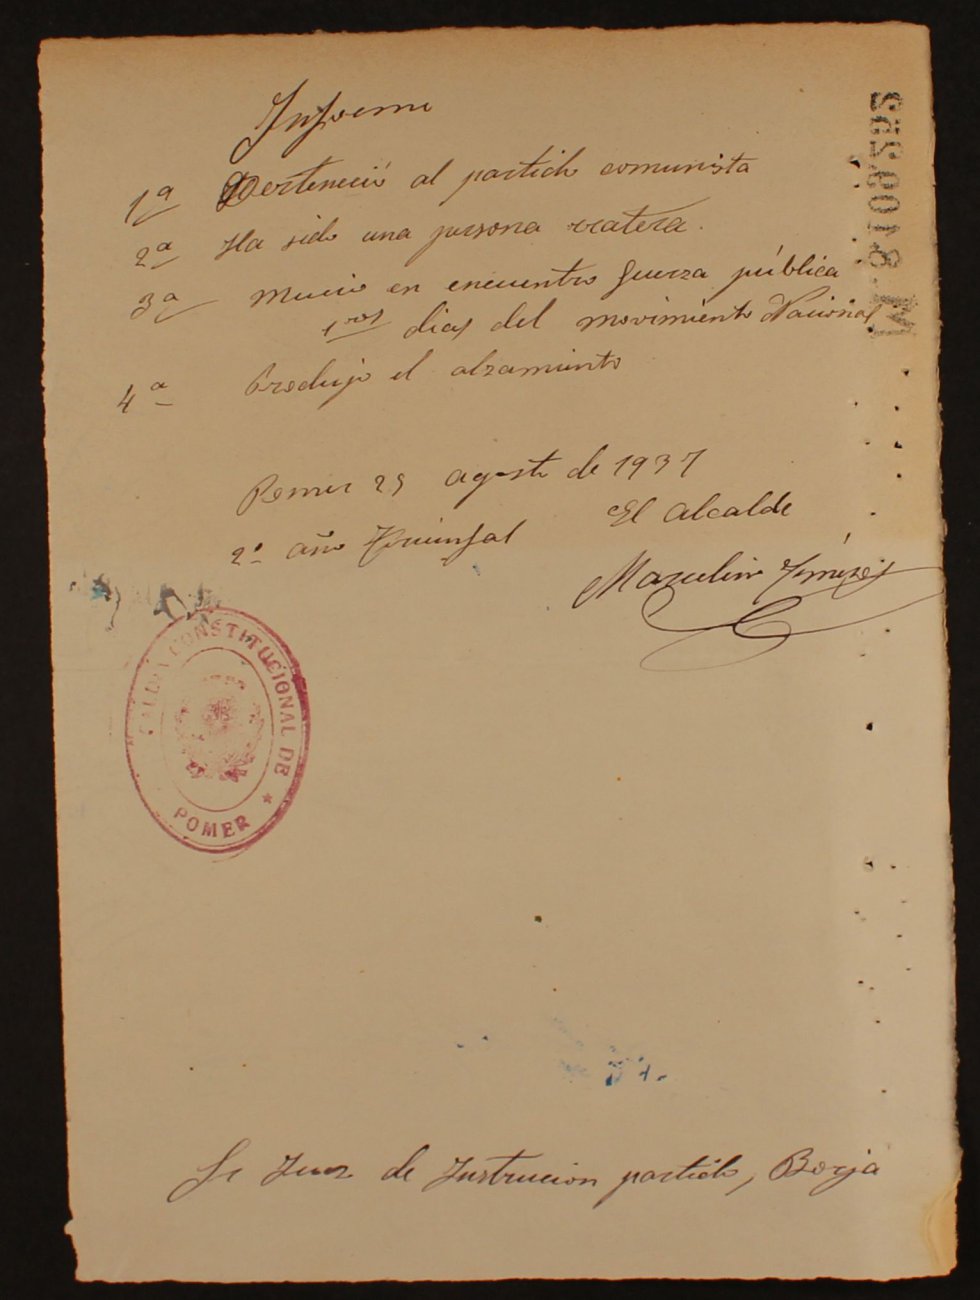 Informe
1ª Perteneció al partido comunista
2ª Ha sido una persona ratera.
3ª Murió en encuentro fuerza pública
1ros dias del movimiento Nacional
4ª Produjo el alzamiento
Pomer 25 agosto de 1937
2º año triunfal El alcalde
Marcelino Jiménez
ALCALDIA CONSTITUCIONAL DE
POMER
Sr Juez de Instrucion partido, Borja